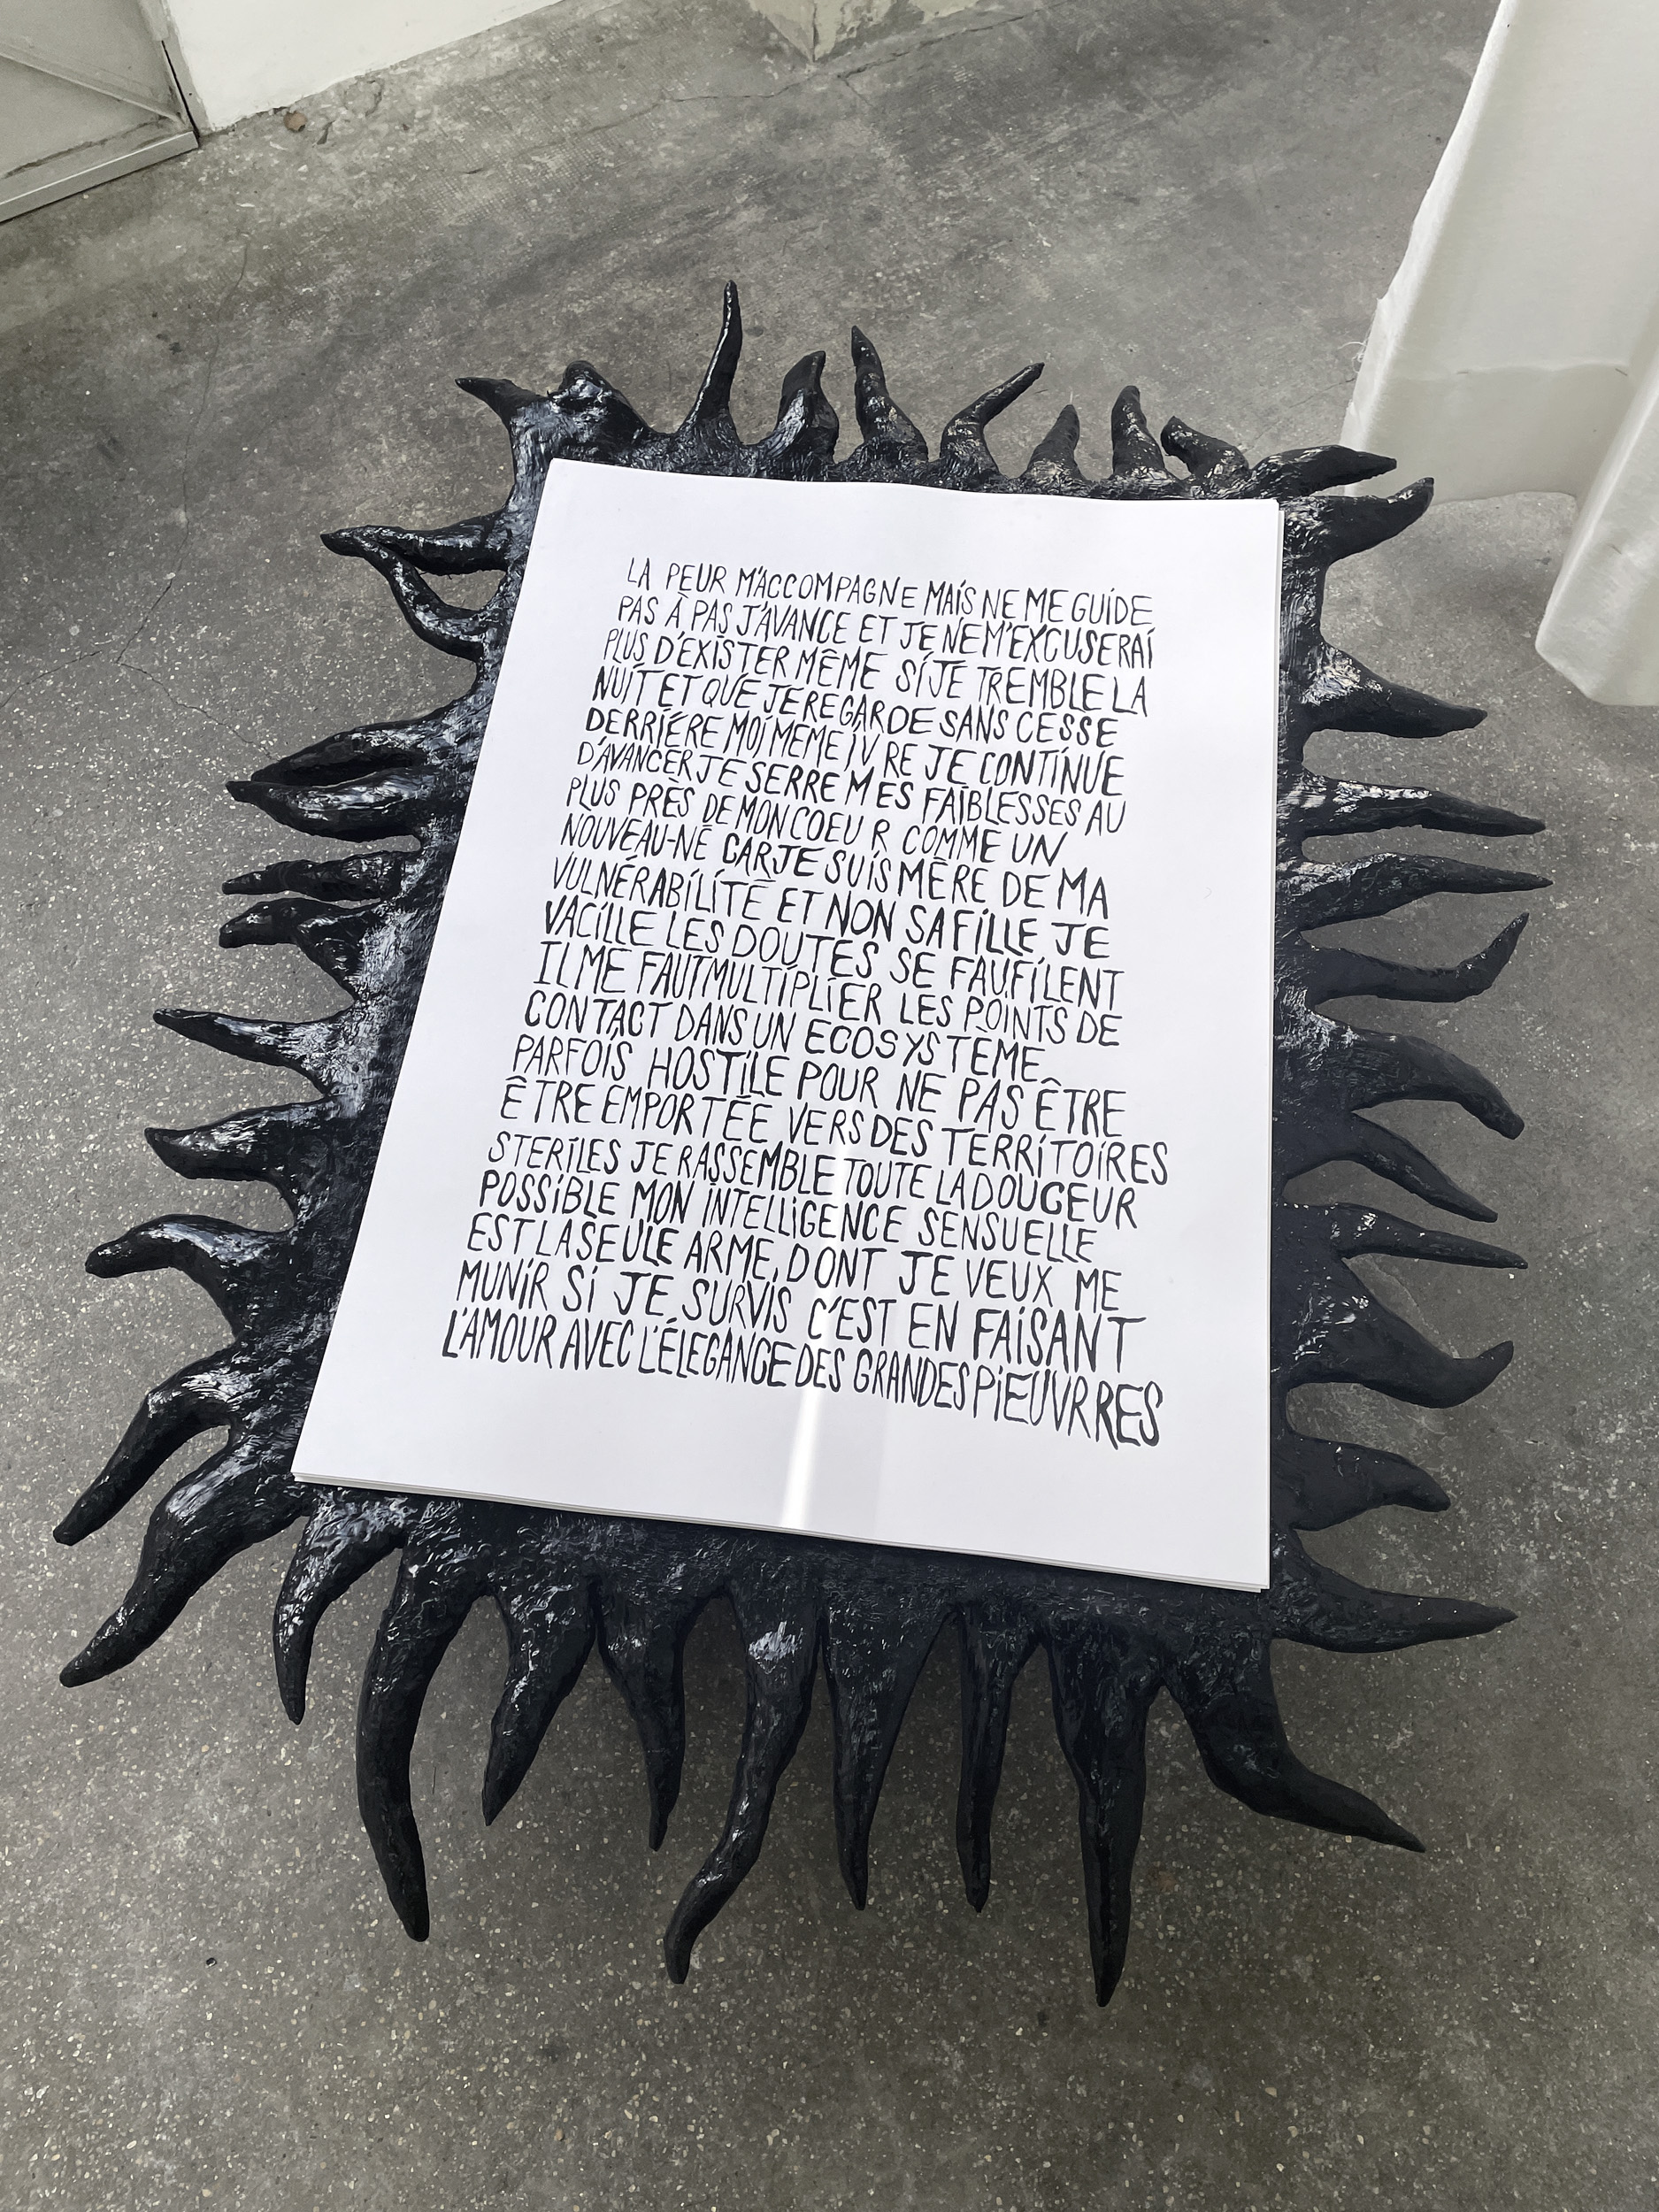 LA PEUR M'ACCOMPAGNE MAIS NE ME GUIDE
PAS À PAS J'AVANCE ET JE NE M'EXCUSERAI
PLUS D'EXISTER MÊME SI JE TREMBLE LA
NUIT ET QUE JE REGARDE SANS CESSE
DERRIÉRE MOI MEME IVRE JE CONTINUE
D'AVANCER JE SERRE MES FAIBLESSES AU
PLUS PRES DE MON COEUR COMME UN
NOUVEAU-NÉ CAR JE SUIS MÈRE DE MA
VULNÉRABILITÉ ET NON SA FILLE JE
VACILLE LES DOUTES SE FAUFILENT
IL ME FAUT MULTIPLIER LES POINTS DE
CONTACT DANS UN ECOSYSTEME
PARFOIS HOSTILE POUR NE PAS ÊTRE
ÊTRE EMPORTÉE VERS DES TERRITOIRES
STERILES JE RASSEMBLE TOUTE LA DOUCEUR
POSSIBLE MON INTELLIGENCE SENSUELLE
EST LA SEULE ARME, DONT JE VEUX ME
MUNIR SI JE SURVIS C'EST EN FAISANT
L'AMOUR AVEC L'ÉLEGANCE DES GRANDES PIEUVRRES